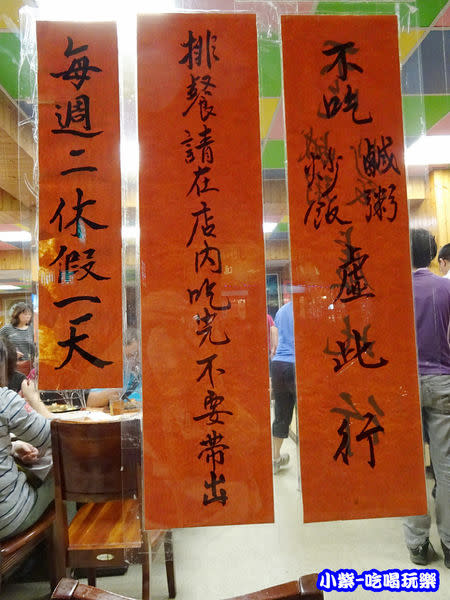 不吃鹹粥炒飯虛此行
排餐請在店內吃完不要帶出
每週二休假一天
小紫-吃喝玩樂